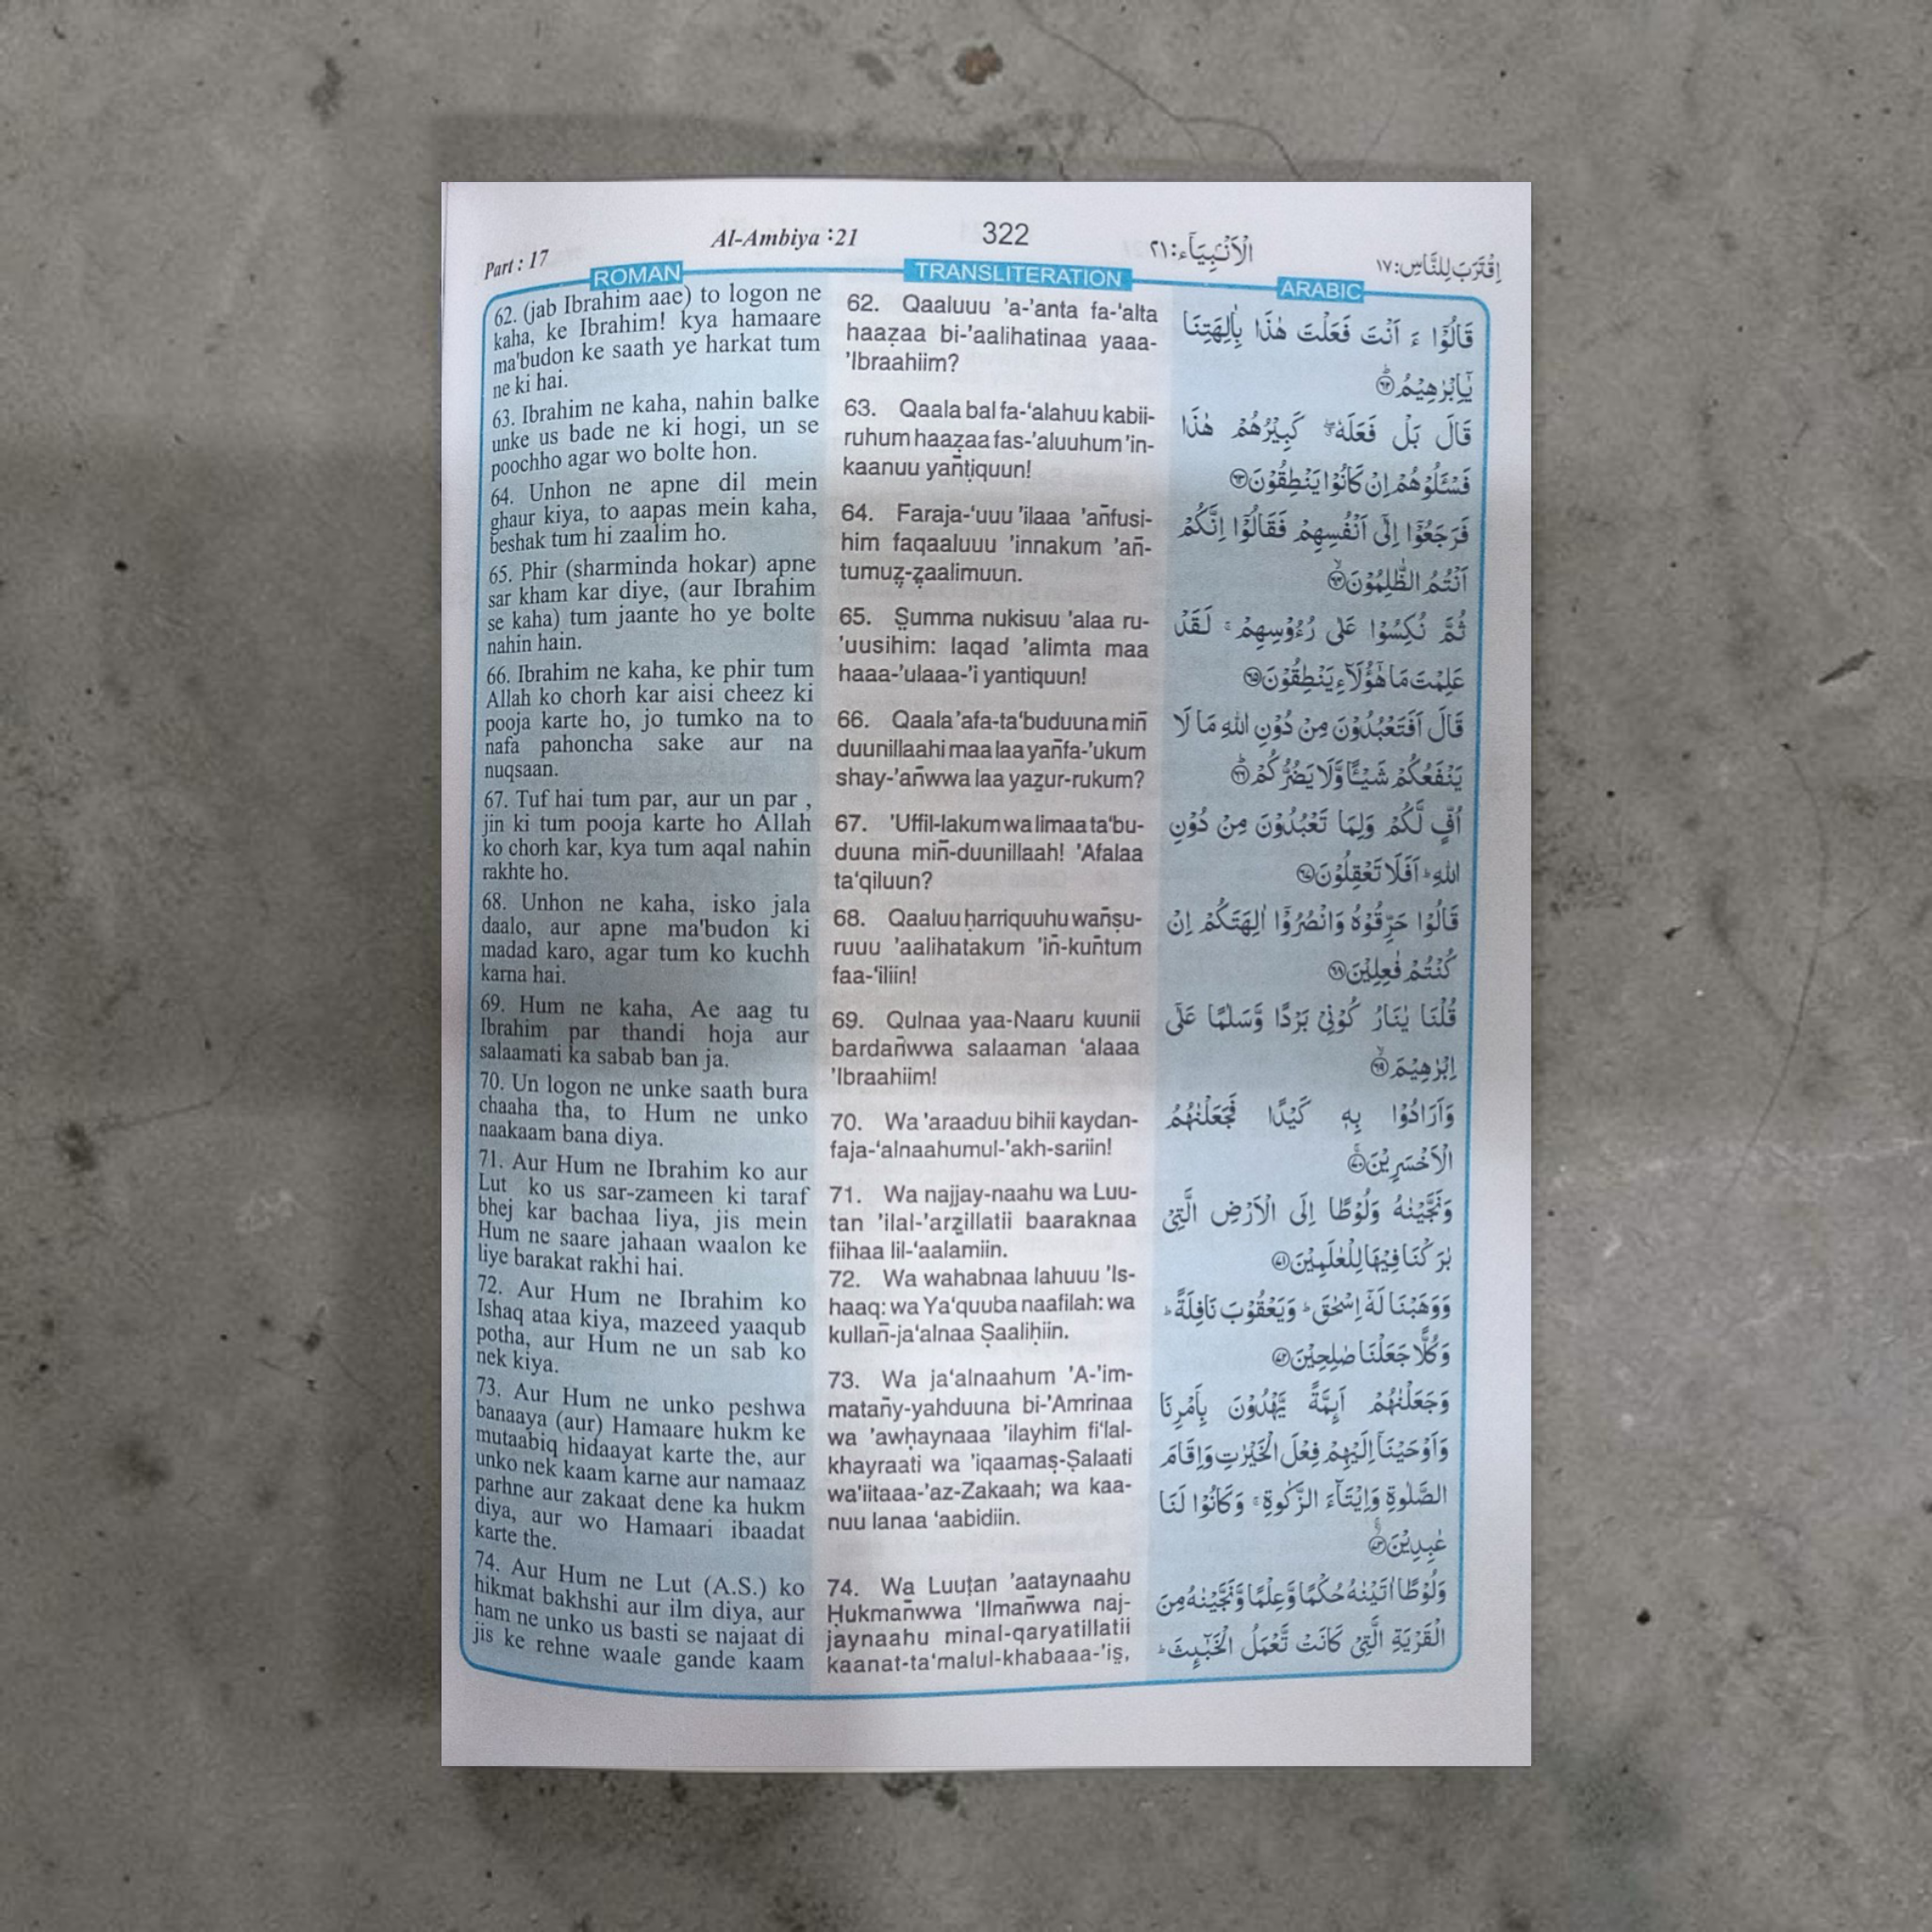 Part : 17
Al-Ambiya :21
322
الْاَنْۢبِيَآء:٢١
اِقْتَرَبَ لِلنَّاسِ:١٧
ROMAN
62. (jab Ibrahim aae) to logon ne
kaha, ke Ibrahim! kya hamaare
ma'budon ke saath ye harkat tum
ne ki hai.
63. Ibrahim ne kaha, nahin balke
unke us bade ne ki hogi, un se
poochho agar wo bolte hon.
64. Unhon ne apne dil mein
ghaur kiya, to aapas mein kaha,
beshak tum hi zaalim ho.
65. Phir (sharminda hokar) apne
sar kham kar diye, (aur Ibrahim
se kaha) tum jaante ho ye bolte
nahin hain.
66. Ibrahim ne kaha, ke phir tum
Allah ko chorh kar aisi cheez ki
pooja karte ho, jo tumko na to
nafa pahoncha sake aur na
nuqsaan.
67. Tuf hai tum par, aur un par ,
jin ki tum pooja karte ho Allah
ko chorh kar, kya tum aqal nahin
rakhte ho.
68. Unhon ne kaha, isko jala
daalo, aur apne ma'budon ki
madad karo, agar tum ko kuchh
karna hai.
69. Hum ne kaha, Ae aag tu
Ibrahim par thandi hoja aur
salaamati ka sabab ban ja.
70. Un logon ne unke saath bura
chaaha tha, to Hum ne unko
naakaam bana diya.
71. Aur Hum ne Ibrahim ko aur
Lut ko us sar-zameen ki taraf
bhej kar bachaa liya, jis mein
Hum ne saare jahaan waalon ke
liye barakat rakhi hai.
72. Aur Hum ne Ibrahim ko
Ishaq ataa kiya, mazeed yaaqub
potha, aur Hum ne un sab ko
nek kiya.
73. Aur Hum ne unko peshwa
banaaya (aur) Hamaare hukm ke
mutaabiq hidaayat karte the, aur
unko nek kaam karne aur namaaz
parhne aur zakaat dene ka hukm
diya, aur wo Hamaari ibaadat
karte the.
74. Aur Hum ne Lut (A.S.) ko
hikmat bakhshi aur ilm diya, aur
ham ne unko us basti se najaat di
jis ke rehne waale gande kaam
TRANSLITERATION
62. Qaaluuu 'a-'anta fa-'alta
haaẓaa bi-'aalihatinaa yaaa-
'Ibraahiim?
63. Qaala bal fa-‘alahuu kabii-
ruhum haaẓaa fas-'aluuhum 'in-
kaanuu yañṭiquun!
64. Faraja-‘uuu 'ilaaa 'añfusi-
him faqaaluuu 'innakum 'añ-
tumuẓ-ẓaalimuun.
65. S̤umma nukisuu 'alaa ru-
'uusihim: laqad 'alimta maa
haaa-'ulaaa-'i yantiquun!
66. Qaala 'afa-ta‘buduuna miñ
duunillaahi maa laa yañfa-'ukum
shay-'añwwa laa yaẓur-rukum?
67. 'Uffil-lakum wa limaa ta‘bu-
duuna miñ-duunillaah! 'Afalaa
ta‘qiluun?
68. Qaaluu ḥarriquuhu wañṣu-
ruuu 'aalihatakum 'iñ-kuñtum
faa-‘iliin!
69. Qulnaa yaa-Naaru kuunii
bardañwwa salaaman ‘alaaa
'Ibraahiim!
70. Wa 'araaduu bihii kaydan-
faja-‘alnaahumul-'akh-sariin!
71. Wa najjay-naahu wa Luu-
tan 'ilal-'arẓillatii baaraknaa
fiihaa lil-‘aalamiin.
72. Wa wahabnaa lahuuu 'Is-
haaq: wa Ya‘quuba naafilah: wa
kullañ-ja‘alnaa Ṣaaliḥiin.
73. Wa ja‘alnaahum 'A-'im-
matañy-yahduuna bi-'Amrinaa
wa 'awḥaynaaa 'ilayhim fi‘lal-
khayraati wa 'iqaamaṣ-Ṣalaati
wa'iitaaa-'az-Zakaah; wa kaa-
nuu lanaa ‘aabidiin.
74. Wa Luuṭan 'aataynaahu
Ḥukmañwwa ‘Ilmañwwa naj-
jaynaahu minal-qaryatillatii
kaanat-ta‘malul-khabaaa-'is̤,
ARABIC
قَالُوْۤا ءَ اَنْتَ فَعَلْتَ هٰذَا بِاٰلِهَتِنَا
يٰۤاِبْرٰهِيْمُ ؕ۝٦٢
قَالَ بَلْ فَعَلَهٗ ۖۗ كَبِيْرُهُمْ هٰذَا
فَسْـَٔلُوْهُمْ اِنْ كَانُوْا يَنْطِقُوْنَ ۝٦٣
فَرَجَعُوْۤا اِلٰۤى اَنْفُسِهِمْ فَقَالُوْۤا اِنَّكُمْ
اَنْتُمُ الظّٰلِمُوْنَ ۙ۝٦٤
ثُمَّ نُكِسُوْا عَلٰى رُءُوْسِهِمْ ۚ لَقَدْ
عَلِمْتَ مَا هٰۤؤُلَآءِ يَنْطِقُوْنَ ۝٦٥
قَالَ اَفَتَعْبُدُوْنَ مِنْ دُوْنِ اللّٰهِ مَا لَا
يَنْفَعُكُمْ شَيْـًٔا وَّلَا يَضُرُّكُمْ ؕ۝٦٦
اُفٍّ لَّكُمْ وَلِمَا تَعْبُدُوْنَ مِنْ دُوْنِ
اللّٰهِ ؕ اَفَلَا تَعْقِلُوْنَ ۝٦٧
قَالُوْا حَرِّقُوْهُ وَانْصُرُوْۤا اٰلِهَتَكُمْ اِنْ
كُنْتُمْ فٰعِلِيْنَ ۝٦٨
قُلْنَا يٰنَارُ كُوْنِيْ بَرْدًا وَّسَلٰمًا عَلٰۤى
اِبْرٰهِيْمَ ۙ۝٦٩
وَاَرَادُوْا بِهٖ كَيْدًا فَجَعَلْنٰهُمُ
الْاَخْسَرِيْنَ ۚ۝٧٠
وَنَجَّيْنٰهُ وَلُوْطًا اِلَى الْاَرْضِ الَّتِيْ
بٰرَكْنَا فِيْهَا لِلْعٰلَمِيْنَ ۝٧١
وَوَهَبْنَا لَهٗۤ اِسْحٰقَ ؕ وَيَعْقُوْبَ نَافِلَةً ؕ
وَكُلًّا جَعَلْنَا صٰلِحِيْنَ ۝٧٢
وَجَعَلْنٰهُمْ اَىِٕمَّةً يَّهْدُوْنَ بِاَمْرِنَا
وَاَوْحَيْنَاۤ اِلَيْهِمْ فِعْلَ الْخَيْرٰتِ وَاِقَامَ
الصَّلٰوةِ وَاِيْتَآءَ الزَّكٰوةِ ۚ وَكَانُوْا لَنَا
عٰبِدِيْنَ ۚۙ۝٧٣
وَلُوْطًا اٰتَيْنٰهُ حُكْمًا وَّعِلْمًا وَّنَجَّيْنٰهُ مِنَ
الْقَرْيَةِ الَّتِيْ كَانَتْ تَّعْمَلُ الْخَبٰٓىِٕثَ ؕ